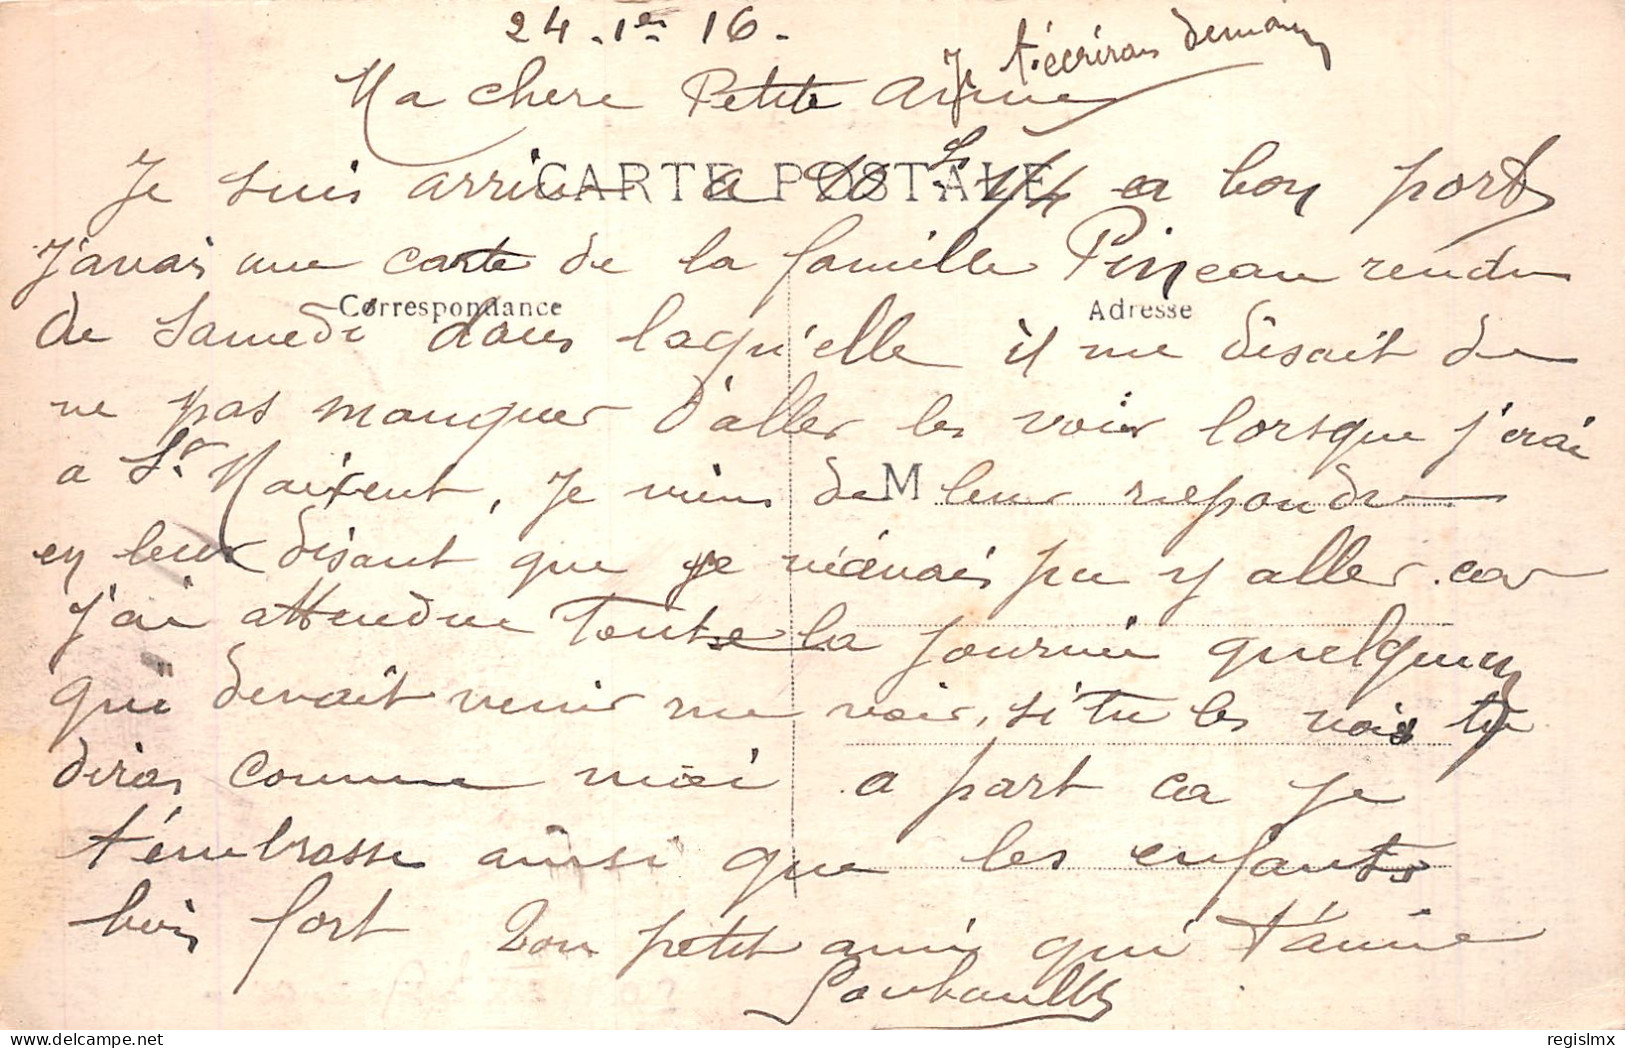 24 - 1er 16 -
Je t'écrirai demain
Ma chere Petite
CARTE POSTALE
Je suis arrivé a 10 h 1/4 a bon port
J'avais une carte de la famille Pineau rendu
Correspondance
Adresse
de Samedi dans laqu'elle il me disait de
ne pas manquer d'aller les voir lorsque j'irai
a St Maixent, Je viens de leur repondre
M
en leur disant que je n'avais pu y aller car
j'ai attendue toute la journée quelqu'un
qui devait venir me voir, si tu les vois tu
diras comme moi a part ca je
t'émbrasse ainsi que les enfants
bien fort Ton petit ami qui t'aime
regislmx